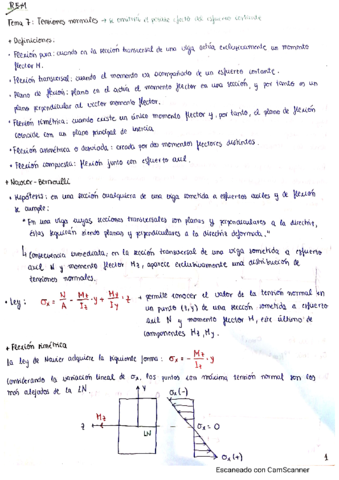 REM
Tema 7: Tensiones normales → se omitirá el posible efecto del esfuerzo cortante
+ Definiciones:
• Flexión pura: cuando en la sección transversal de una viga actúa exclusivamente un momento
flector M.
• Flexión transversal: cuando el momento va acompañado de un esfuerzo cortante.
• Plano de flexión: plano en el actúa el momento flector en una sección, y por tanto es un
plano perpendicular al vector momento flector.
• Flexión simétrica: cuando existe un único momento flector y, por tanto, el plano de flexión
coincide con un plano principal de inercia
• Flexión asimétrica o desviada: creada por dos momentos flectores distintos.
• Flexión compuesta: flexión junto con esfuerzo axil.
+ Navier-Bernoulli
• Hipótesis: en una sección cualquiera de una viga sometida a esfuerzos axiles y de flexión
se cumple:
"En una viga cuyas secciones transversales son planas y perpendiculares a la directriz,
éstas seguirán siendo planas y perpendiculares a la directriz deformada."
↳ Consecuencia inmediata: en la sección transversal de una viga sometida a esfuerzo
axil N y momento flector Mz, aparece exclusivamente una distribución de
tensiones normales.
• Ley: σx = N/A - Mz/Iz · y + My/Iy · z → permite conocer el valor de la tensión normal en
un punto (z,y) de una sección sometida a esfuerzo
axil N y momento flector M, este último de
componentes Mz, My.
+ Flexión simétrica
La ley de Navier adquiere la siguiente forma: σx = - Mz/Iz · y
Considerando la variación lineal de σx, los puntos con máxima tensión normal son los
más alejados de la LN.
y
σx(-)
Mz
z
LN
σx = 0
σx(+)
1
Escaneado con CamScanner